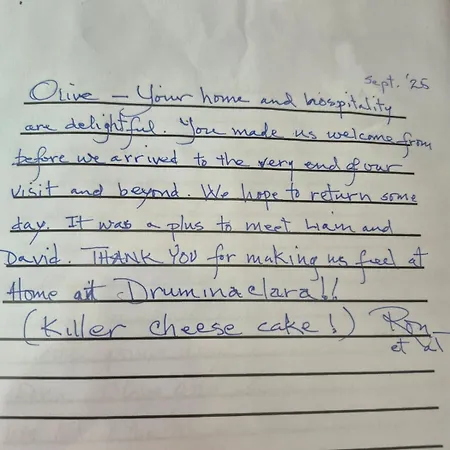 Sept. '25
Olive — Your home and hospitality
are delightful. You made us welcome from
before we arrived to the very end of our
visit and beyond. We hope to return some
day. It was a plus to meet Liam and
David. THANK YOU for making us feel at
Home at Druminaclara!!
(Killer cheese cake!) Ron
et al